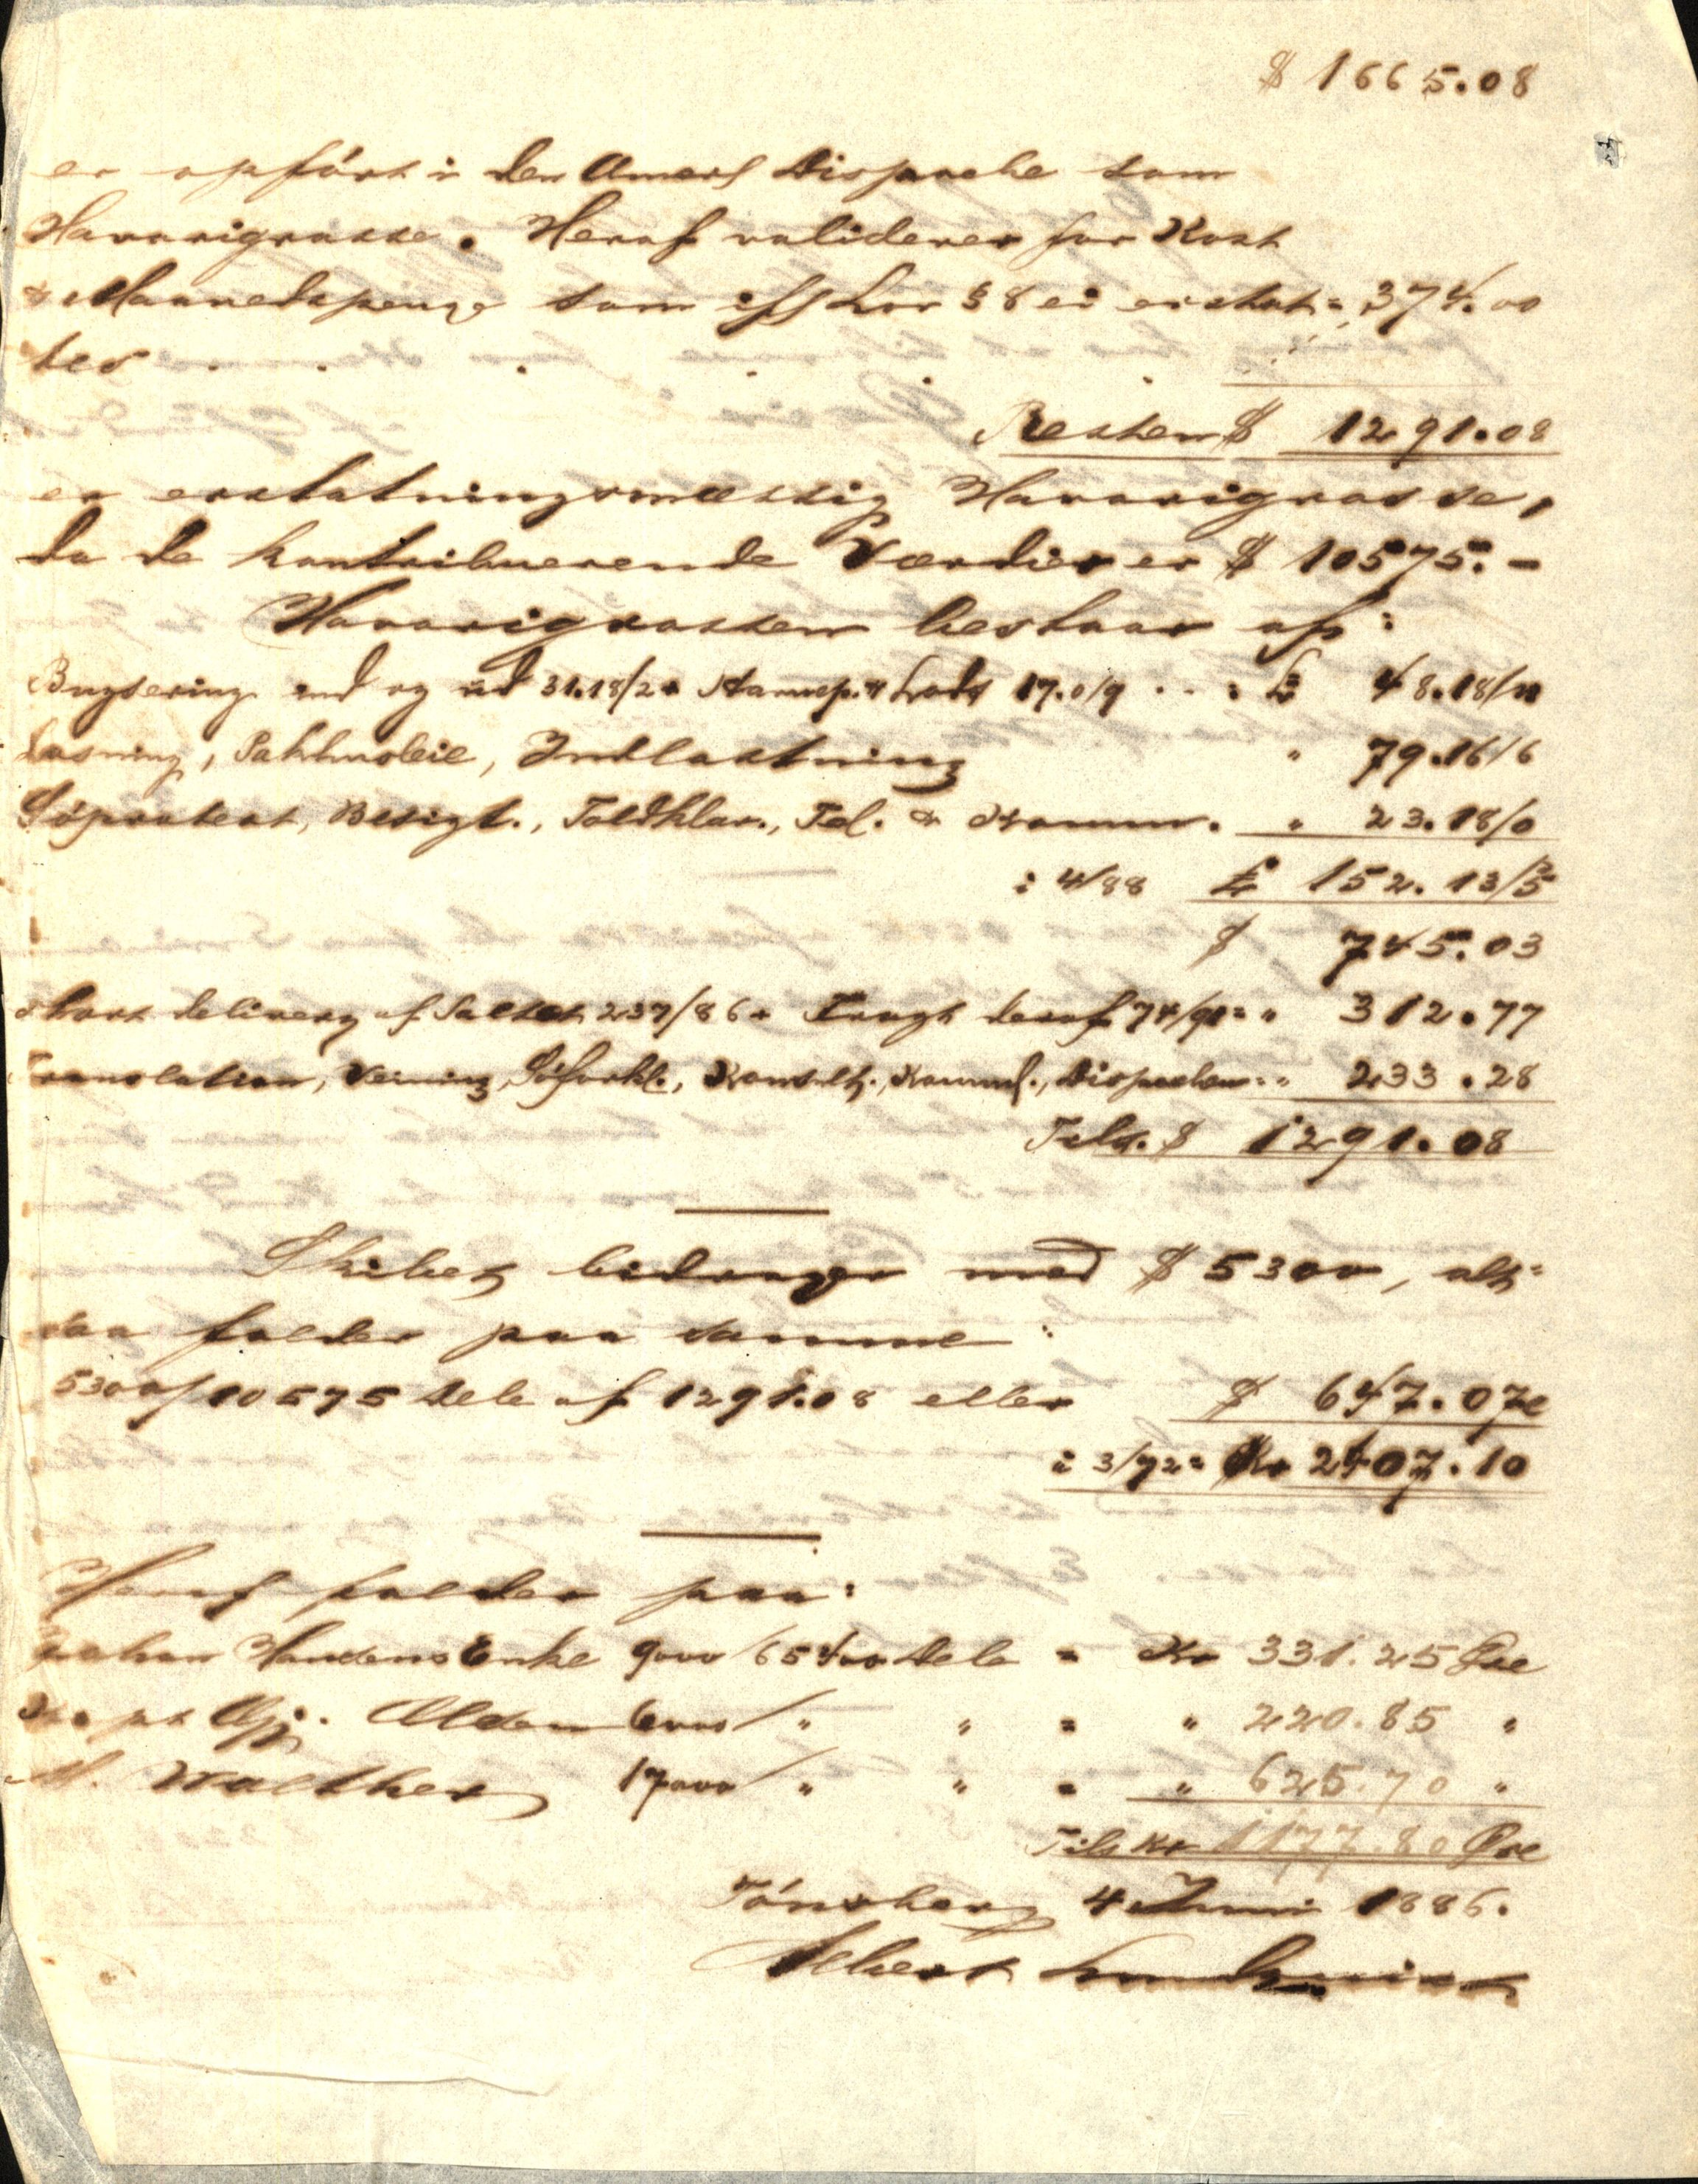 $ 1665.08
er opført i den Amerf Dispache som
Havarigrosse. Heraf validerer for Kost
& Maanedspenge som ifl Lov § 8 ei erstat= 374.00
tes . . . . . .
Resten $ 1291.08
er erstatningsmæssig Havarigrosse,
da de kontribuerende Værdier er $ 10575.-
Havarigrossen bestaar af:
Bugsering ind og ud 31.18/2 & Havnep. & Lods 17.0/9 . . : £ 48.18/11
Losning, Pakhusleie, Indlastning " 79.16/6
Søprotest, Besigt., Toldklar., Tel. & Komm. " 23.18/0
i 4/88 £ 152.13/5
$ 745.03
short delivery af Saltet 237/86 & Fragt deraf 74/91 = " 312.77
Translation, Veining, Søforkl., Konsult., Kommf., Dispachen : " 233.28
Tils. $ 1291.08
Skibet bidrager med $ 5300, alt=
saa falder paa samme :
5300/10575 Dele af 1291.08 eller $ 647.07c
i 3/72 = Kr 2407.10
Heraf falder paa:
Johan Hansens Enke 9000/65400 Dele = Kr 331.25 Øre
Olsen 6000/ " " = " 220.85 "
Walther 17000/ " " = " 625.70 "
Tils Kr 1177.80 Øre
Tönsberg 4 Juni 1886.
Albert